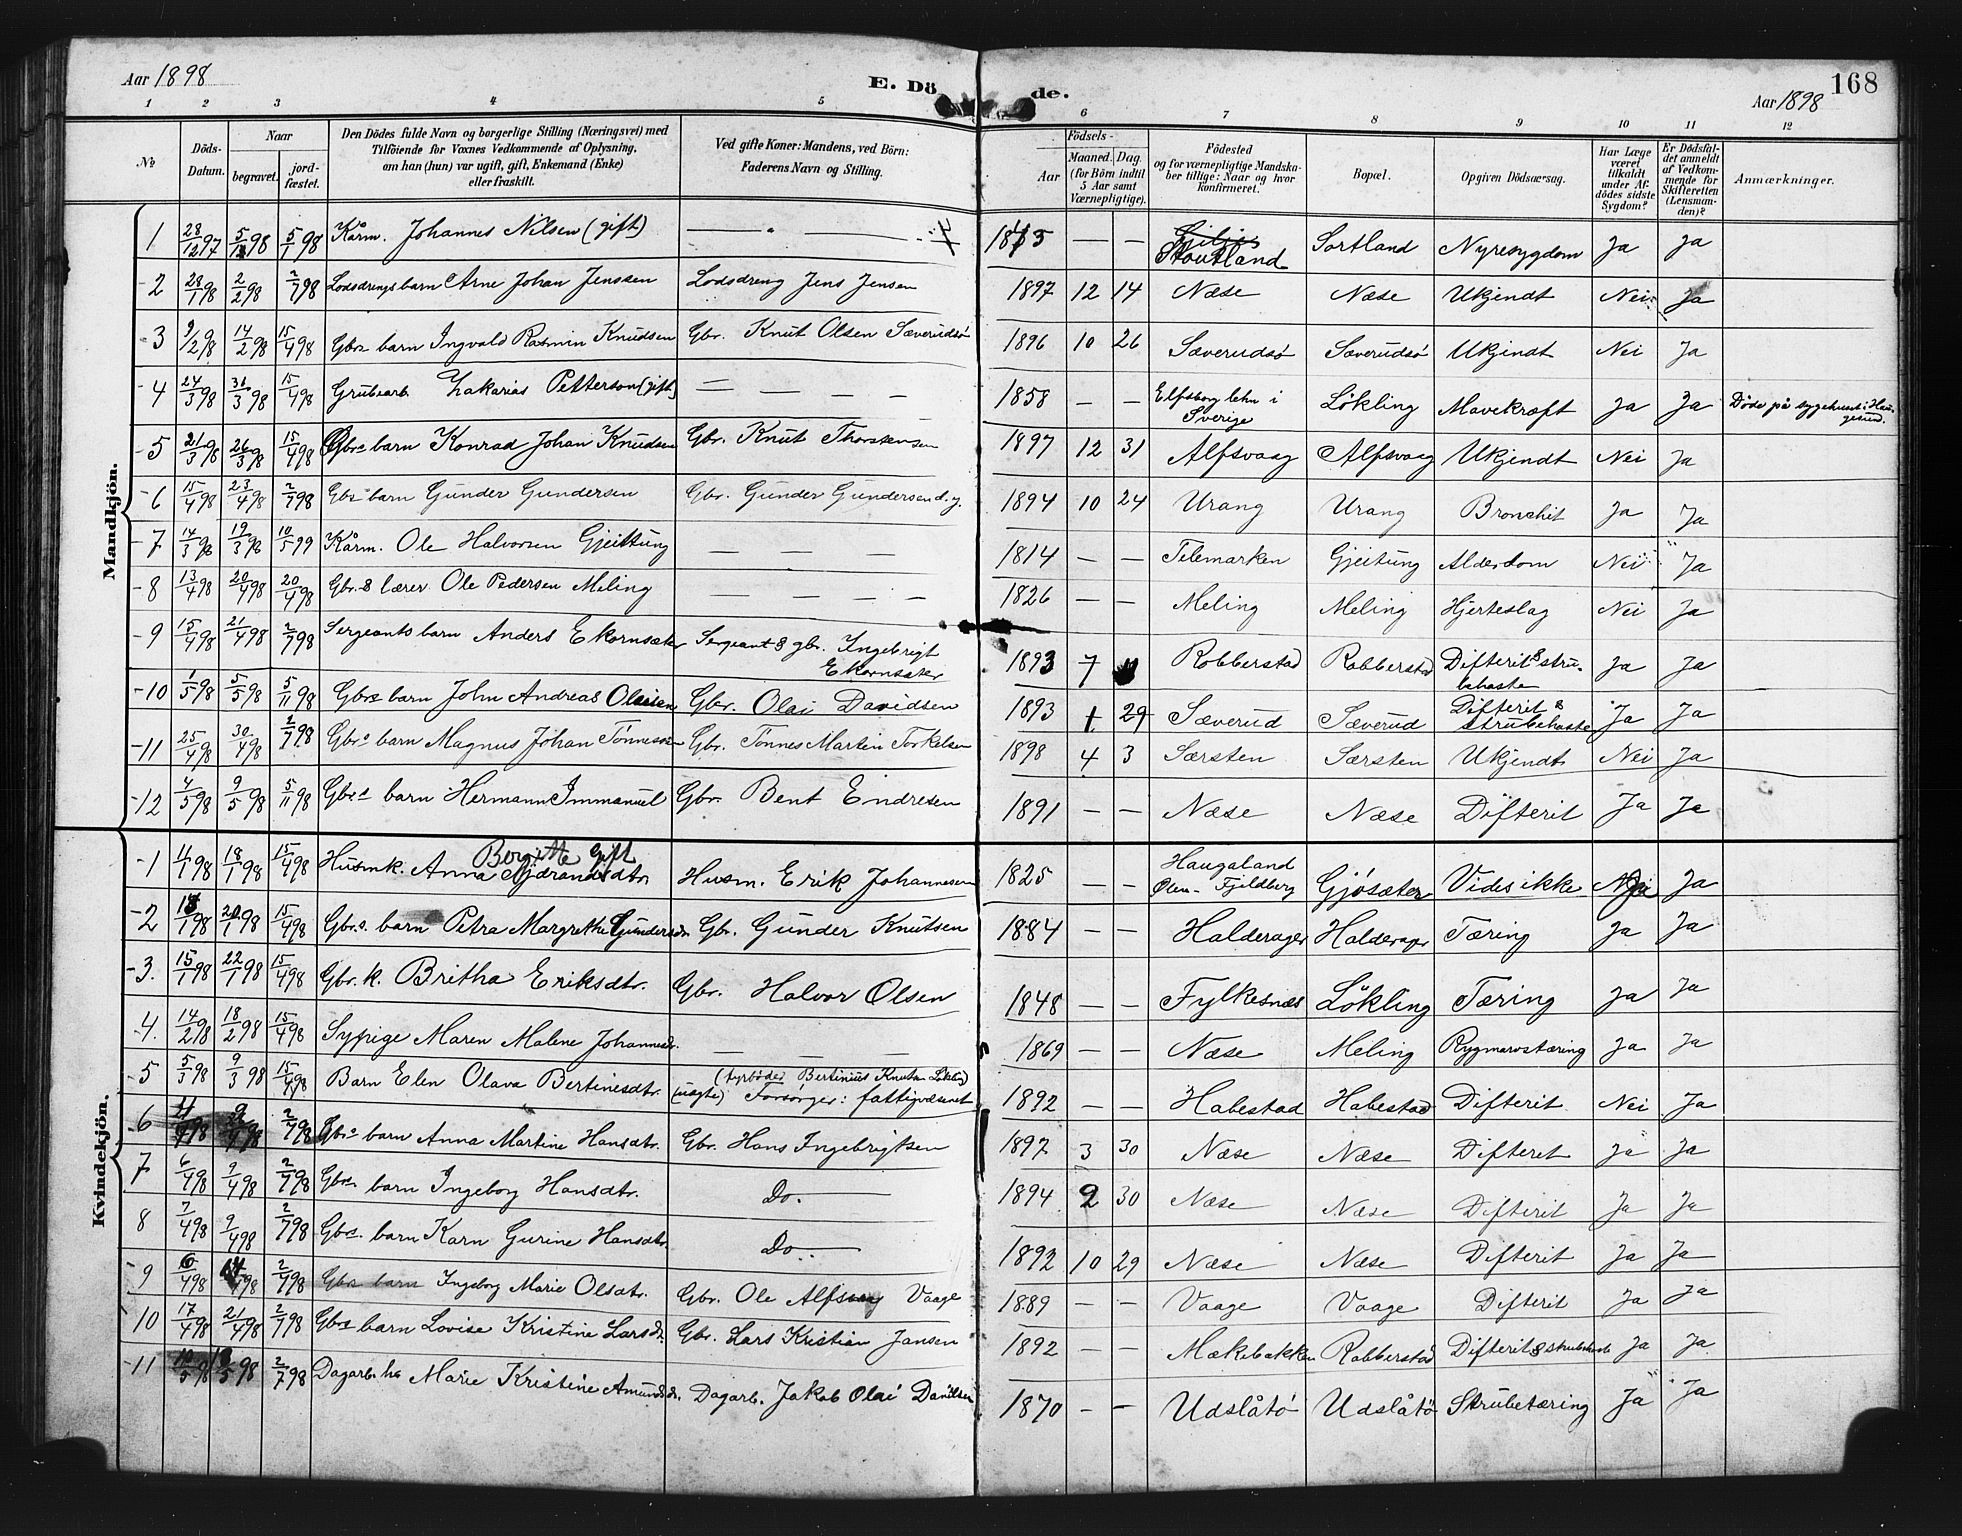 Aar 1898
E. Dö de.
168
Aar 1898
1 2 3 4 5 6 7 8 9 10 11 12
№
Döds-Datum.
Naar
begravet.
jord-fæstet.
Den Dödes fulde Navn og borgerlige Stilling (Næringsvei) med
Tilföiende for Voxnes Vedkommende af Oplysning,
om han (hun) var ugift, gift, Enkemand (Enke)
eller fraskilt.
Ved gifte Koner: Mandens, ved Börn:
Faderens Navn og Stilling.
Födsels-
Aar
Maaned. Dag.
(for Börn indtil
5 Aar samt
Værnepligtige).
Födested
og for værnepligtige Mandska-
ber tillige: Naar og hvor
konfirmeret.
Bopæl.
Opgiven Dödsaarsag.
Har Læge
været
tilkaldt
under Af-
dödes sidste
Sygdom?
Er Dödsfal-
det anmeldt
af Vedkom-
mende for
Skifteretten
(Lensman-
den)?
Anmærkninger.
Mandkjön.
1 28/12 97 5/1 98 5/1 98 Kårm. Johannes Nilsen (gift) — " — — — Stoutland Sortland Nyresygdom Ja Ja
2 28/1 98 2/2 98 2/7 98 Lodsdrengsbarn Arne Johan Jenssen Lodsdreng Jens Jensen 1897 12 14 Næse Næse Ukjendt Nei Ja
3 9/2 98 14/2 98 15/4 98 Gbrs barn Ingvald Rasmin Knudsen Gbr. Knut Olsen Sæverudsö 1896 10 26 Sæverudsö Sæverudsö Ukjendt Nei Ja
4 24/3 98 31/3 98 15/4 98 Grubearb. Zakarias Petterson (gift) — — — — 1858 — — Elfsborg lehn i Sverige Lökling Mavekræft Ja Ja Döde på sygehuset i Haugesund.
5 21/3 98 26/3 98 15/4 98 Gbrs barn Konrad Johan Knudsen Gbr. Knut Thorstensen 1897 12 31 Alfsvaag Alfsvaag Ukjendt Nei Ja
6 15/4 98 23/4 98 2/7 98 Gbrs barn Gunder Gundersen Gbr. Gunder Gundersen d.y. 1894 10 24 Urang Urang Bronchit Ja Ja
7 14/3 98 19/3 98 10/5 99 Kårm. Ole Halvorsen Gjeitung — — — — 1814 — — Telemarken Gjeitung Alderdom Nei Ja
8 13/4 98 20/4 98 20/4 98 Gbr. & lærer Ole Pedersen Meling — — — — 1826 — — Meling Meling Hjerteslag Nei Ja
9 15/4 98 21/4 98 2/7 98 Sergeants barn Anders Ekornsæter Sergeant & gbr. Ingebrigt Ekornsæter 1893 7 Robberstad Robberstad Difterit & strubehoste Ja Ja
10 1/5 98 5/5 98 5/11 98 Gbrs barn John Andreas Olaisen Gbr. Olai Davidsen 1893 1 29 Sæverud Sæverud Difterit & strubehoste Ja Ja
11 25/4 98 30/4 98 2/7 98 Gbrs barn Magnus Johan Tönnesen Gbr. Tönnes Martin Torkelsen 1898 4 3 Særsten Særsten Ukjendt Nei Ja
12 4/5 98 9/5 98 5/11 98 Gbrs barn Hermann Immanuel Gbr. Bent Endresen 1891 — — Næse Næse Difterit Ja Ja
Kvindekjön.
1 11/1 98 18/1 98 15/4 98 Husmk. Anna Bergitte Gift Husm. Erik Johannesen 1825 — — Haugaland Ølen - Fjeldberg Gjösæter Vides ikke Ja
2 98 20/1 98 15/4 98 Gbrs. barn Petra Margrethe Gundersdtr. Gbr. Gunder Knutsen 1884 — — Halderager Halderager Tæring Ja Ja
3. 15/1 98 22/1 98 15/4 98 Gbr. k. Britha Eriksdtr. Gbr. Halvor Olsen 1848 — — Fylkesnæs Lökling Tæring Ja Ja
4. 14/2 98 18/2 98 15/4 98 Sypige Maren Malene Johannesdtr. — — — 1869 — — Næse Meling Rygmarvstæring Ja Ja
5 5/3 98 9/3 98 15/4 98 Barn Elen Olava Bertinesdtr. (uægte) Bertinius Knutsen Lökling) Forsörger: fattigvæsenet 1892 — — Habestad Habestad Difterit Nei Ja
6 98 98 2/7 98 Gbrs barn Anna Martine Hansdtr. Gbr. Hans Ingebrigtsen 1897 3 30 Næse Næse Difterit Ja Ja
7 6/4 98 9/4 98 2/7 98 Gbrs. barn Ingeborg Hansdtr. Do. — 1894 9 30 Næse Næse Difterit Ja Ja
8 7/4 98 9/4 98 2/7 98 Gbrs. barn Karn Gurine Hansdtr. Do. — 1892 10 29 Næse Næse Difterit Ja Ja
9 6/4 98 98 2/7 98 Gbrs barn Ingeborg Marie Olsdtr. Gbr. Ole Alfsvaag Vaage 1889 — — Vaage Vaage Difterit Ja Ja
10 17/4 98 21/4 98 2/7 98 Gbrs barn Lovise Kristine Larsdtr. Gbr. Lars Kristian Jansen 1892 — — Mækebakken Robberstad Difterit & strubehoste Ja Ja
11 10/5 98 98 2/7 98 Dagarb. ha Marie Kristine Amundsdtr. Dagarb. Jakob Olai Danilsen 1870 — — Udslåtö Udslåtö Strubetæring Ja Ja